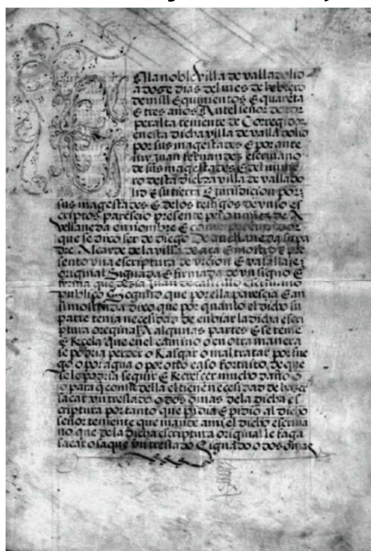 En la noble villa de valladolid
a doze dias del mes de hebrero
de mill E quinientos E quarēta
E tres años Antel señor
peralta teniente de Corregidor
en esta dicha villa de valladolid
por sus magestades E por ante
my Juan fernandez escriuano
de sus magestades E del nume
ro desta dicha villa de vallado
lid E su tierra E juridicion por
sus magestades E de los testigos de yuso es
criptos parescio presente de A
vellaneda en nonbre E como
que se dixo ser de diego de avellaneda su pa
dre Alcayde de la villa de E mostro E pre
sento vna escriptura de E
original Signada E firmada de vn signo E
firma que dezia Juan de escriuano
publico Segund que por ella parescia E an
si mostrada dixo que por quanto el dicho su
parte tenia nescesidad de enbiar la dicha escri
ptura original A algunas partes E se teme
E Recela que en el camino o en otra manera
se podria perder o Rasgar o mal tratar por fue
go o por agua o por otro caso fortuito de que
se le podria seguir E Recrescer mucho daño
para della el tiene nescesidad de hazer
sacar vn treslado o dos o mas de la dicha es
criptura por tanto que pidia E pidio al dicho
señor teniente que mande a mi el dicho escriua
no que de la dicha escriptura original le faga
sacar o saque vn treslado Signado o dos o mas